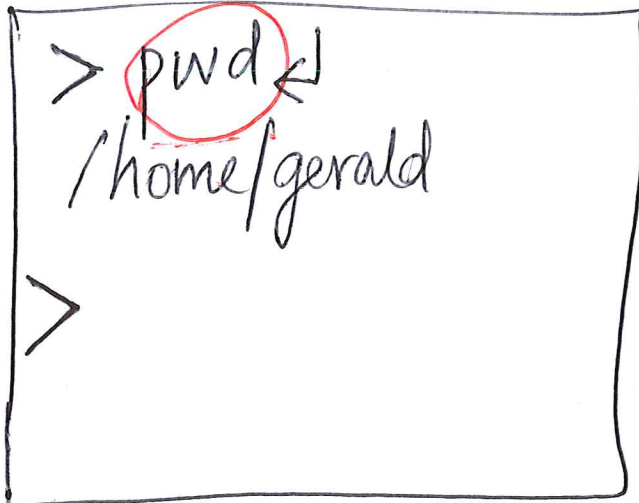 > pwd ↵
/home/gerald
>